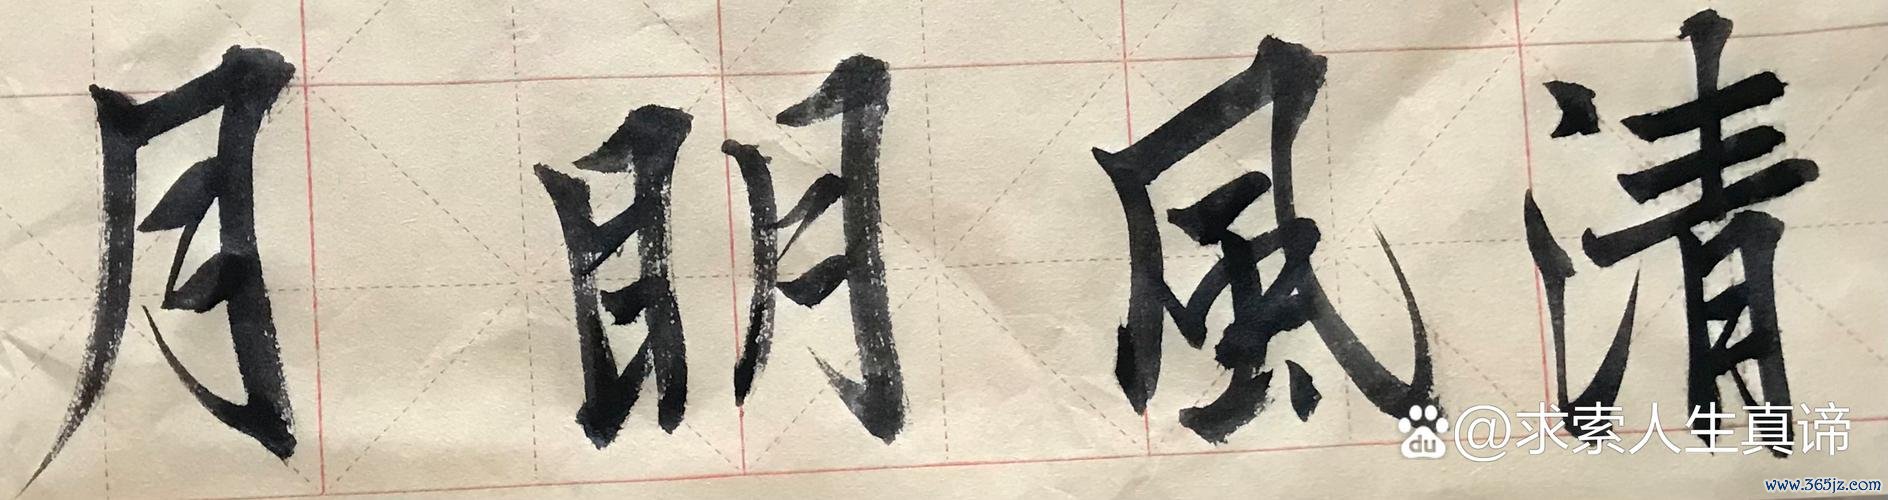 清風明月
du @求索人生真谛
www.365jz.com